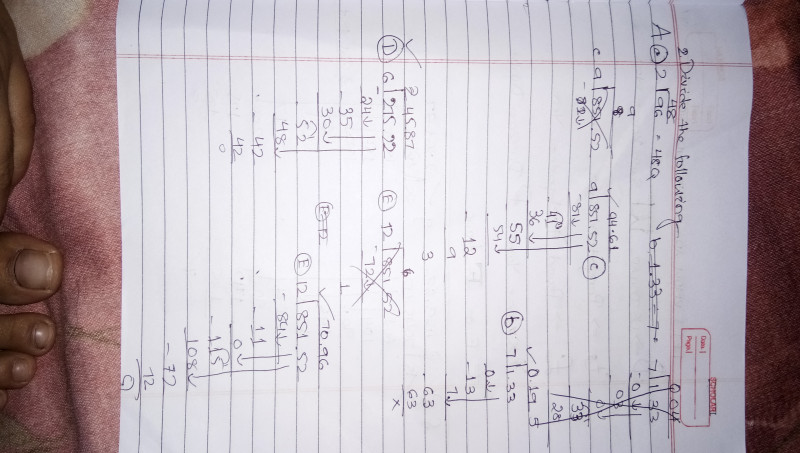 2 Divide the following
A (a) 2 | 96 = 48 Q , b 1.33 ÷ 7 . 7 | 1.33
48
c 9 | 851.52
- 82↓
94.61
9 | 851.52 (C)
- 81↓
36↓
55
54↓
12
9
3
(b) 7 | 1.33
0.19
0↓
13
7↓
63
63
×
(D) 6 | 275.22
45.87
24↓
35
30↓
52
48↓
42
42
0
(E) 12 | 851.52
- 72↓
70.96
(E) 12 | 851.52
- 84↓
11
0↓
115
108↓
72
72